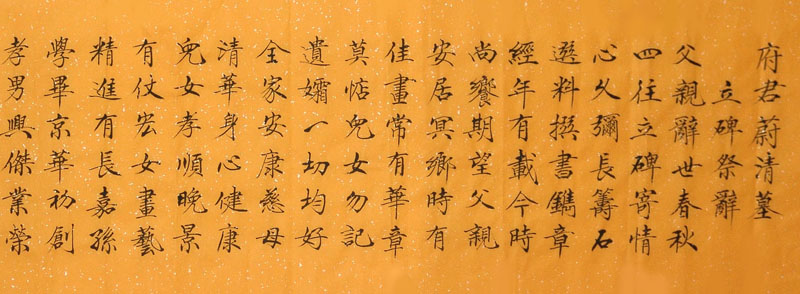 府君蔚清墓
立碑祭辭
父親辭世春秋
四往立碑寄情
心久彌長篝石
選料撰書鐫章
經年有載今時
尚饗期望父親
安居冥鄉時有
佳畫常有華章
莫惦兒女勿記
遺孀一切均好
全家安康慈母
清華身心健康
兒女孝順晚景
有仗宏女畫藝
精進有長嘉孫
學畢京華初創
孝男興傑業榮